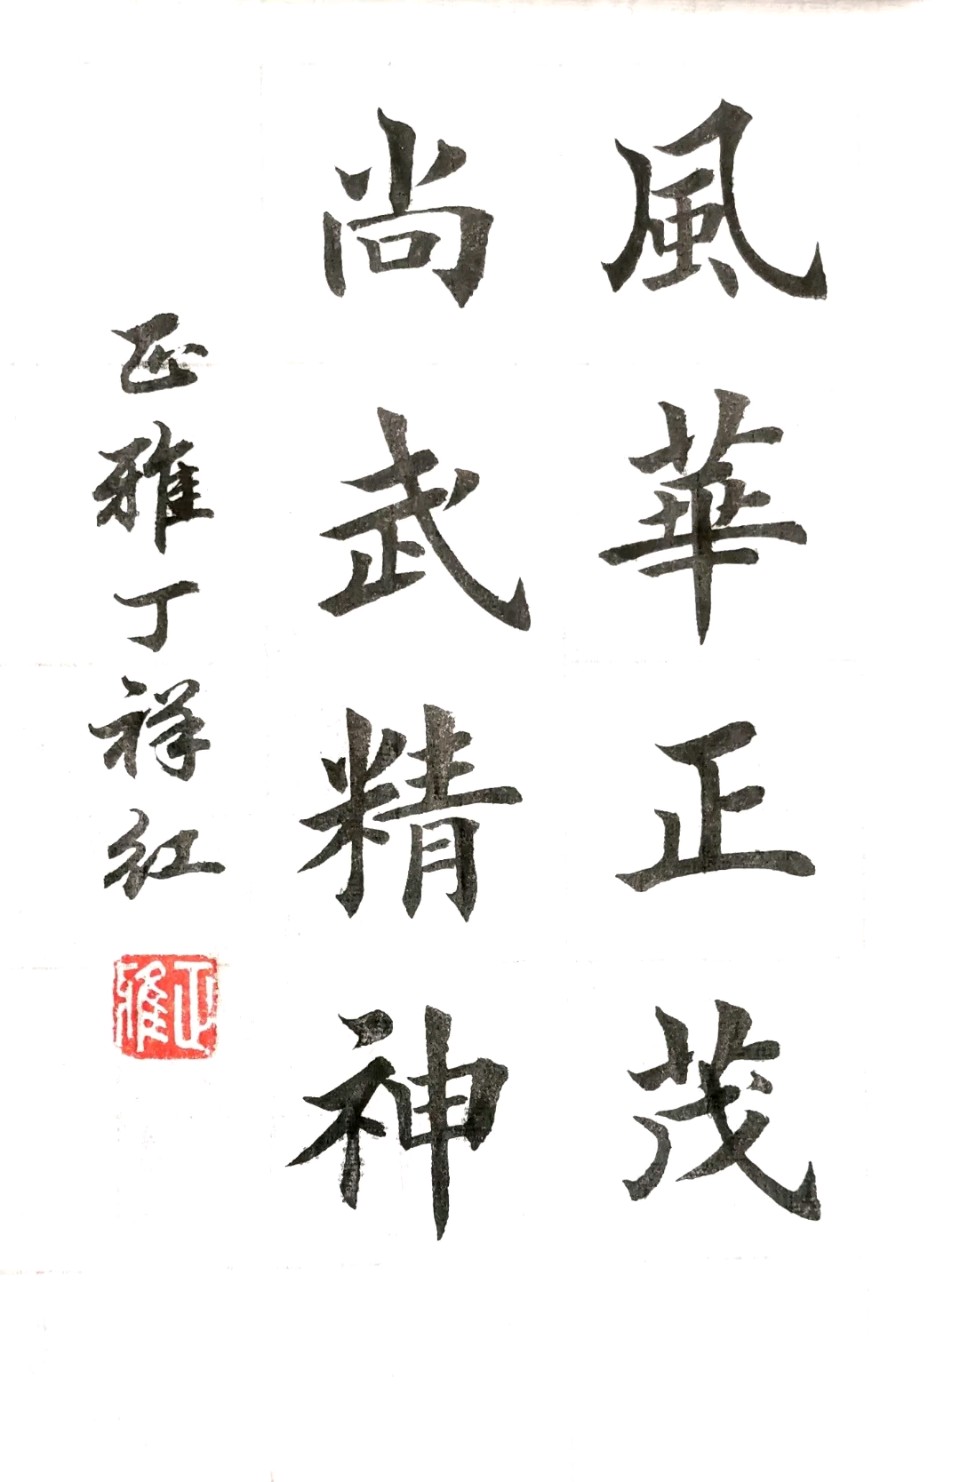 風華正茂
尚武精神
正雅丁祥红
正雅